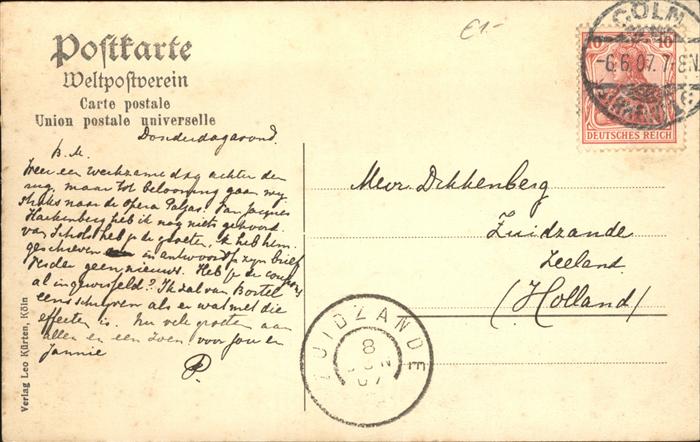 Postkarte
Weltpostverein
Carte postale
Union postale universelle
€1-
CÖLN
-6.6.07.7-8N.
10 10
DEUTSCHES REICH
Donderdagavond.
B. M.
Weer een werkzame dag achter den
rug, maar tot belooning gaan wij
straks naar de opera Van Jacques
Hackenberg heb ik nog niets gehoord.
van Schols heb je de groeten, ik heb hem
geschreven in antwoord op zijn brief
verder geen nieuws. Heb je de coupons
al ingewisseld? Ik zal van Bostel
eens schrijven als er wat met die
effecten is. Nu vele groeten aan
allen en een zoen voor jou en
Jannie
P.
Mevr. Dekkenberg
Zuidzande
Zeeland.
(Holland)
ZUIDZANDE
8
JUN
07
Verlag Leo Kürten, Köln